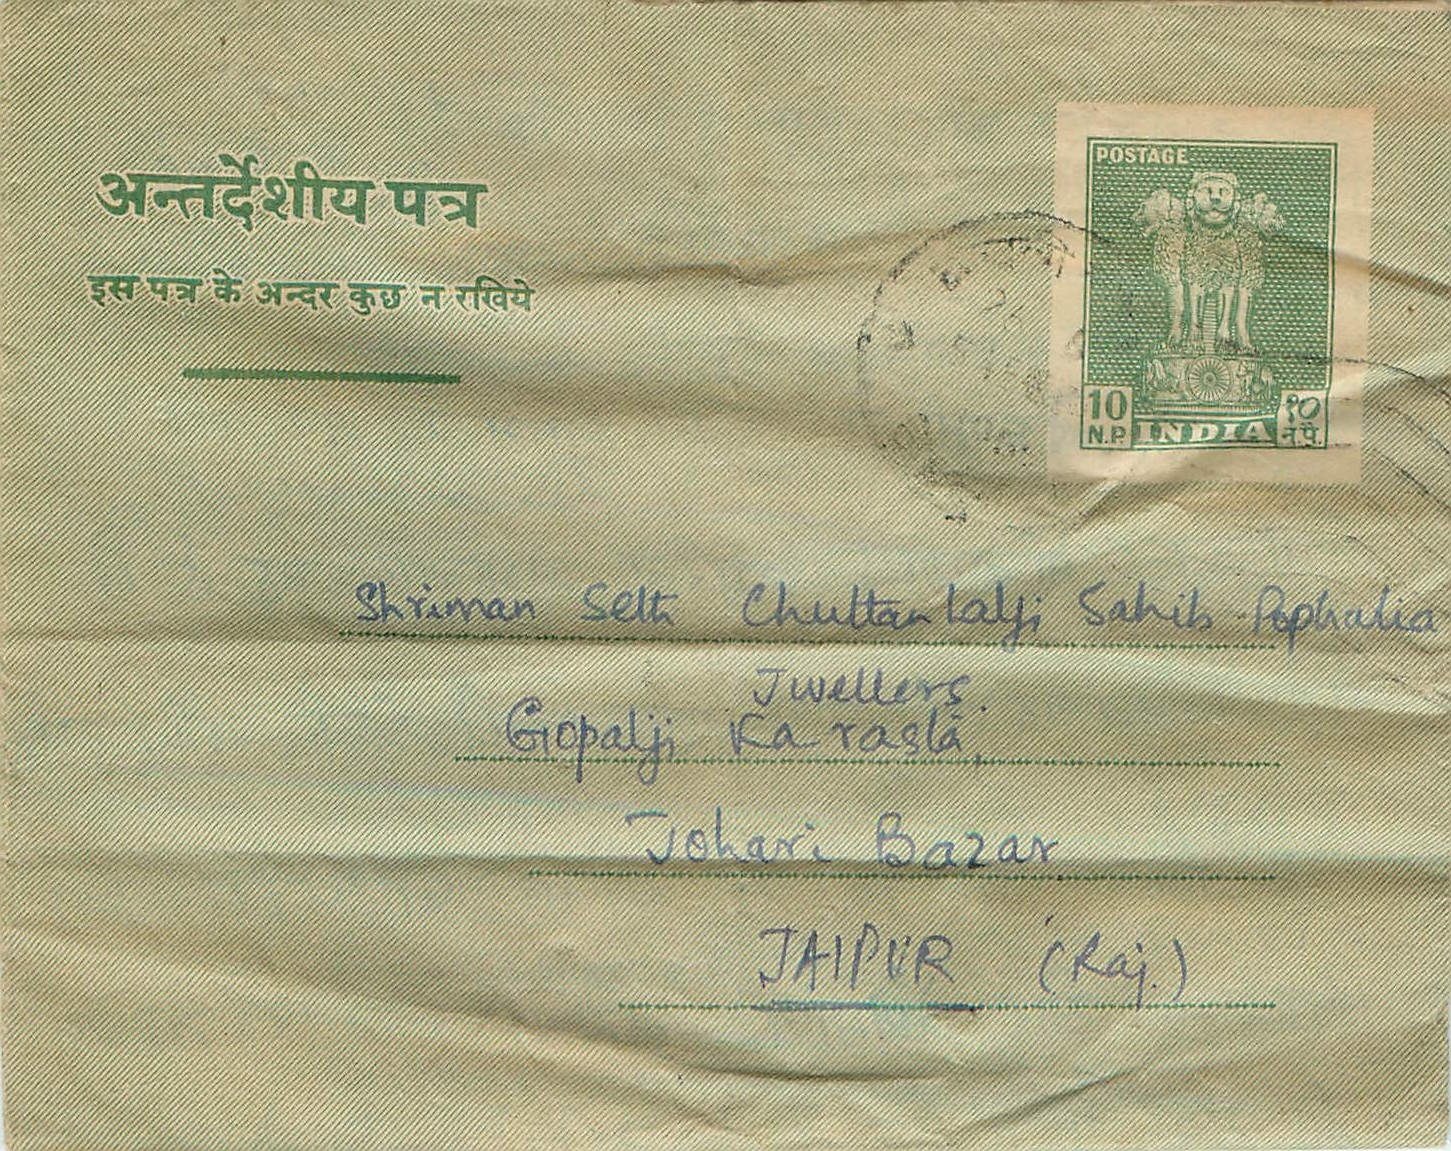 अन्तर्देशीय पत्र
इस पत्र के अन्दर कुछ न रखिये
POSTAGE
10 १०
N.P. INDIA न.पै.
Shriman Seth Chuttanlalji Sahib Pophalia
Jwellers.
Gopalji Ka rasta,
Johari Bazar,
JAIPUR (Raj.)